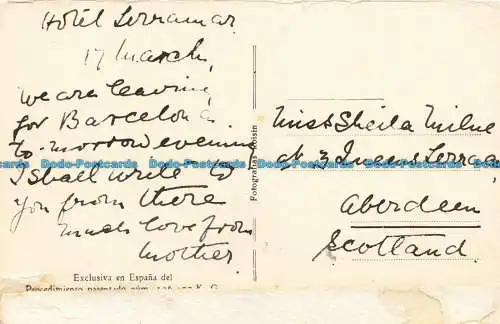 Hotel Terramar.
17 March,
We are leaving
for Barcelona
to-morrow evening
I shall write to
you from there
Much love from
Mother.
Exclusiva en España del
Procedimiento patentado núm.
Fotografías Roisin
Miss Sheila Milne
at 3 Queens Terrace
Aberdeen
Scotland.
Dodo-Postcards Dodo-Postcards Dodo-Postcards Dodo-Postcards Dodo-Postcards